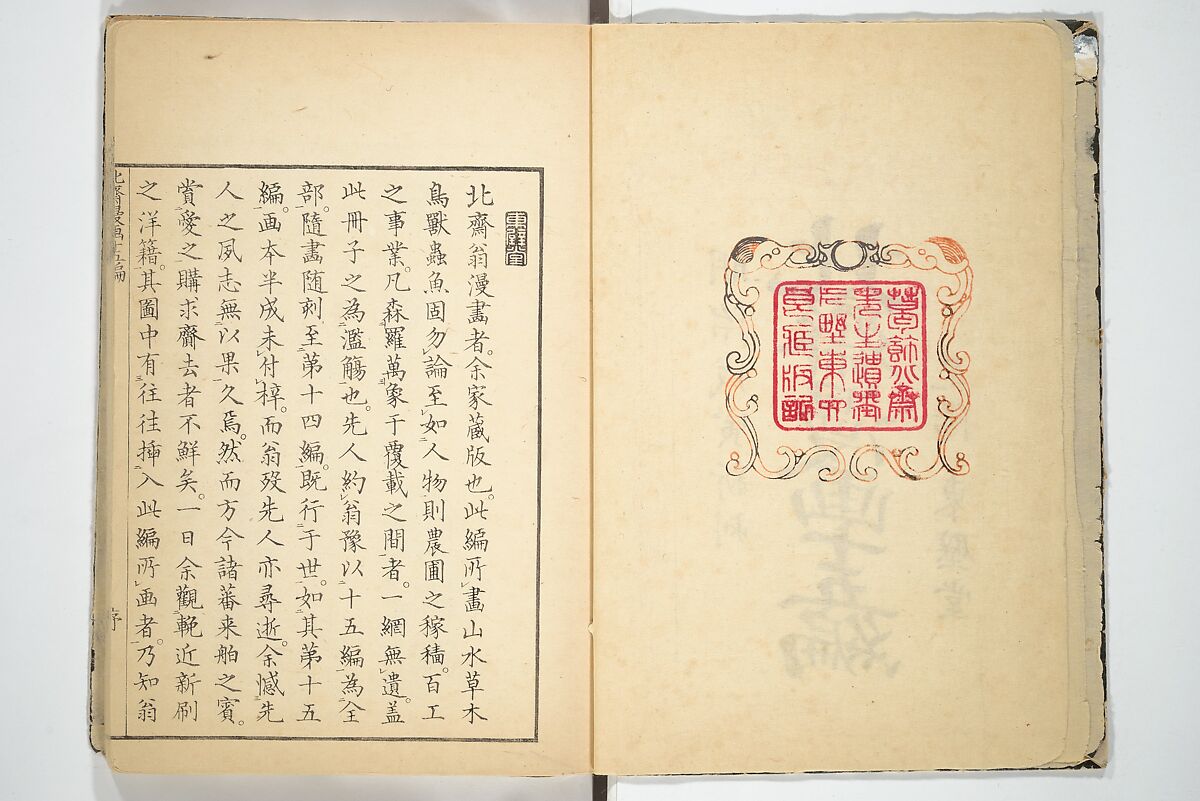 葛飾北齋
片野東四
東壁堂
北齋翁漫畵者。余家蔵版也。此編所畵山水草木
鳥獸蟲魚固勿論至如人物則農圃之稼穡。百工
之事業。凡森羅萬象于覆載之間者。一網無遺。盖
此冊子之為濫觴也。先人約翁豫以十五編為全
部。隨畵随刻至第十四編。既行于世。如其第十五
編。画本半成未付梓。而翁歿先人亦尋逝。余憾先
人之夙志無以果久焉。然而方今諸蕃来舶之賓。
賞愛之購求齎去者不鮮矣。一日余觀輓近新刷
之洋籍。其圖中有往往揷入此編所画者。乃知翁
北齋漫画十五編 序